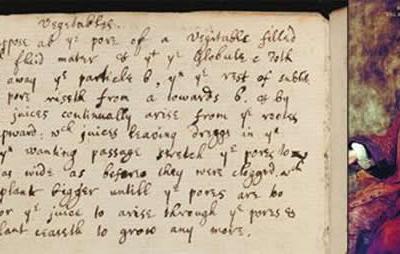 Vegetables.
ppose ab yᵉ pore of a Vegetable filled
fluid mater & yᵗ yᵉ Globule c doth
away yᵉ particle b, yⁿ yᵉ rest of subtle
pore riseth from a towards b. & by
juices continually arise from yᵉ roots
pward: wᶜʰ juices leaving dreggs in yᵉ
yⁿ wanting passage stretch yᵉ pores to
as wide as before they were clogged, wᶜʰ
plant bigger untill yᵉ pores are too
or yᵉ juice to arise through yᵉ pores &
lant ceaseth to grow any more.